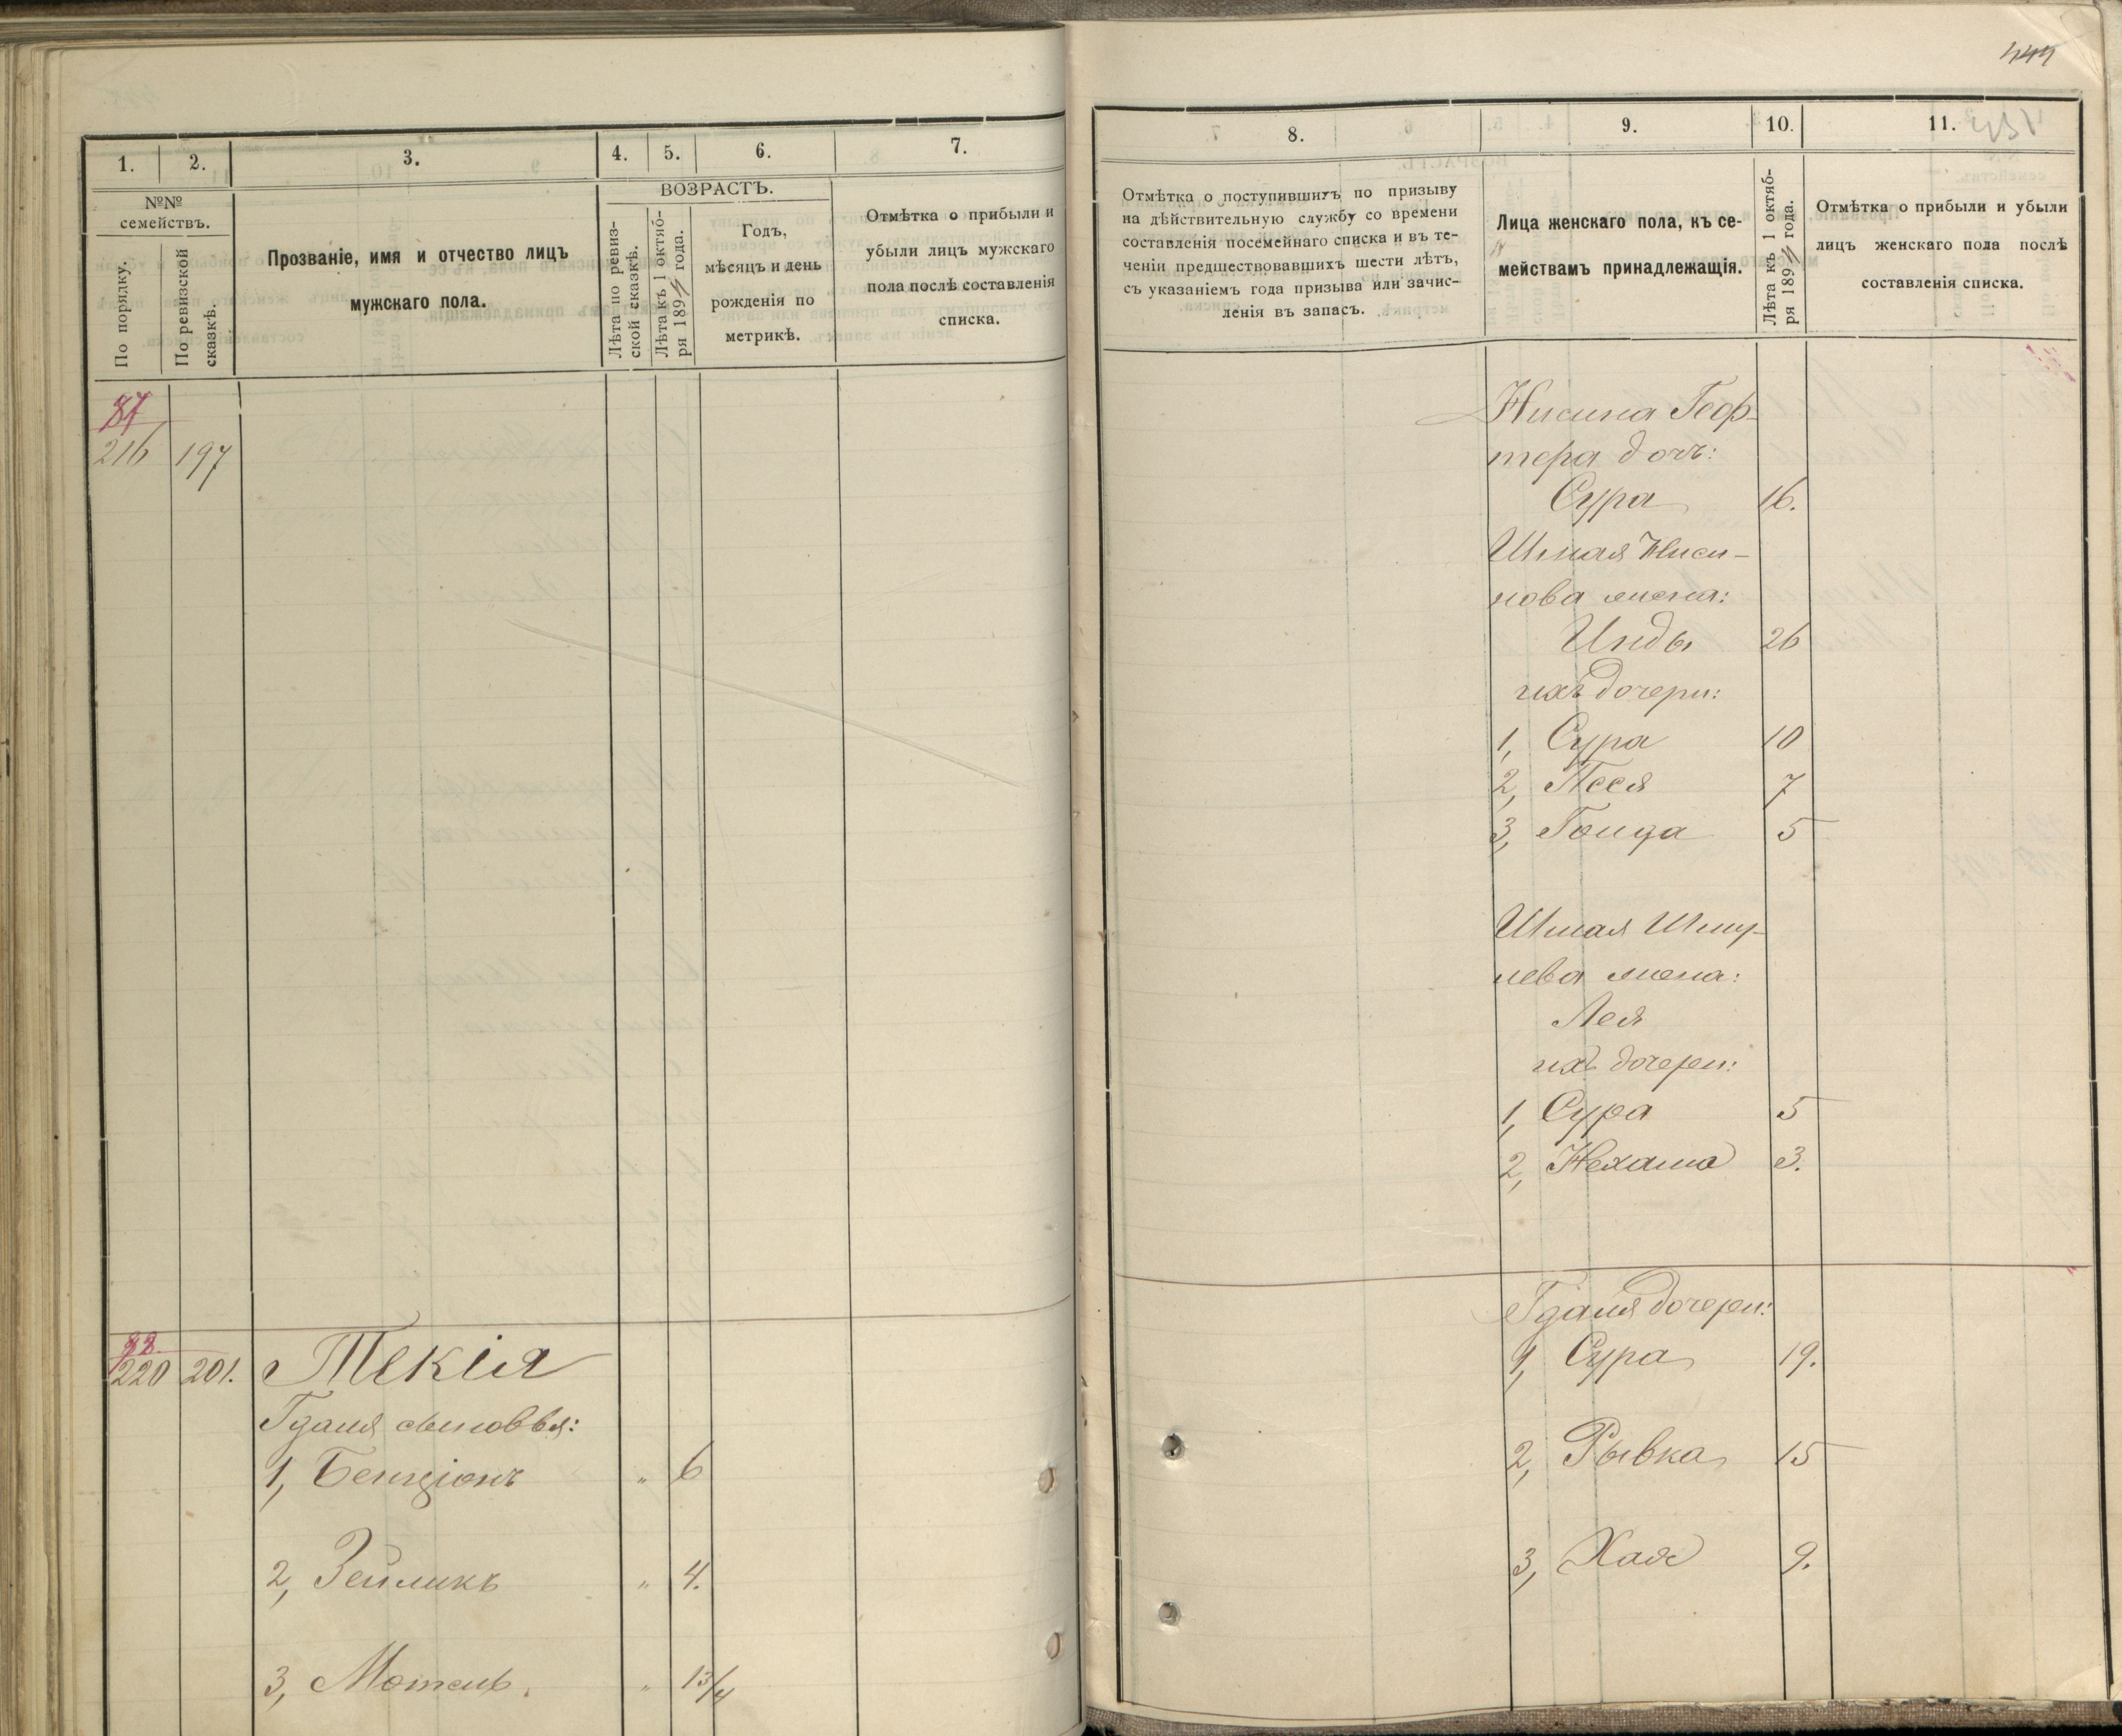 1.
2.
3.
4.
5.
6.
7.
№№
семействъ.
По порядку.
По ревизской
сказкѣ.
Прозваніе, имя и отчество лицъ
мужскаго пола.
ВОЗРАСТЪ.
Лѣта по ревиз-
ской сказкѣ.
Лѣта къ 1 октяб-
ря 189 года.
Годъ,
мѣсяцъ и день
рожденія по
метрикѣ.
Отмѣтка о прибыли и
убыли лицъ мужскаго
пола послѣ составленія
списка.
87
216 197
88.
220 201. Текія
Гдаля сыновья:
1, Бенціонъ " 6
2, Зейликъ " 4.
3, Мотель. "
8.
9.
10.
11.
Отмѣтка о поступившихъ по призыву
на дѣйствительную службу со времени
составленія посемейнаго списка и въ те-
ченіи предшествовавшихъ шести лѣтъ,
съ указаніемъ года призыва или зачис-
ленія въ запасъ.
Лица женскаго пола, къ се-
мействамъ принадлежащія.
Лѣта къ 1 октяб-
ря 189 года.
Отмѣтка о прибыли и убыли
лицъ женскаго пола послѣ
составленія списка.
Нисина Геор-
тера дочь:
Сура 16.
Шмая Ниси-
нова жена:
Инды 26
ихъ дочери:
1, Сура 10
2, Песя 7
3, 5
Шмая Шму-
лева жена:
Лея
ихъ дочери:
1, Сура 5
2, Нехама 3.
Гдаля дочери:
1, Сура 19.
2, Рывка 15
3, Хая 9.